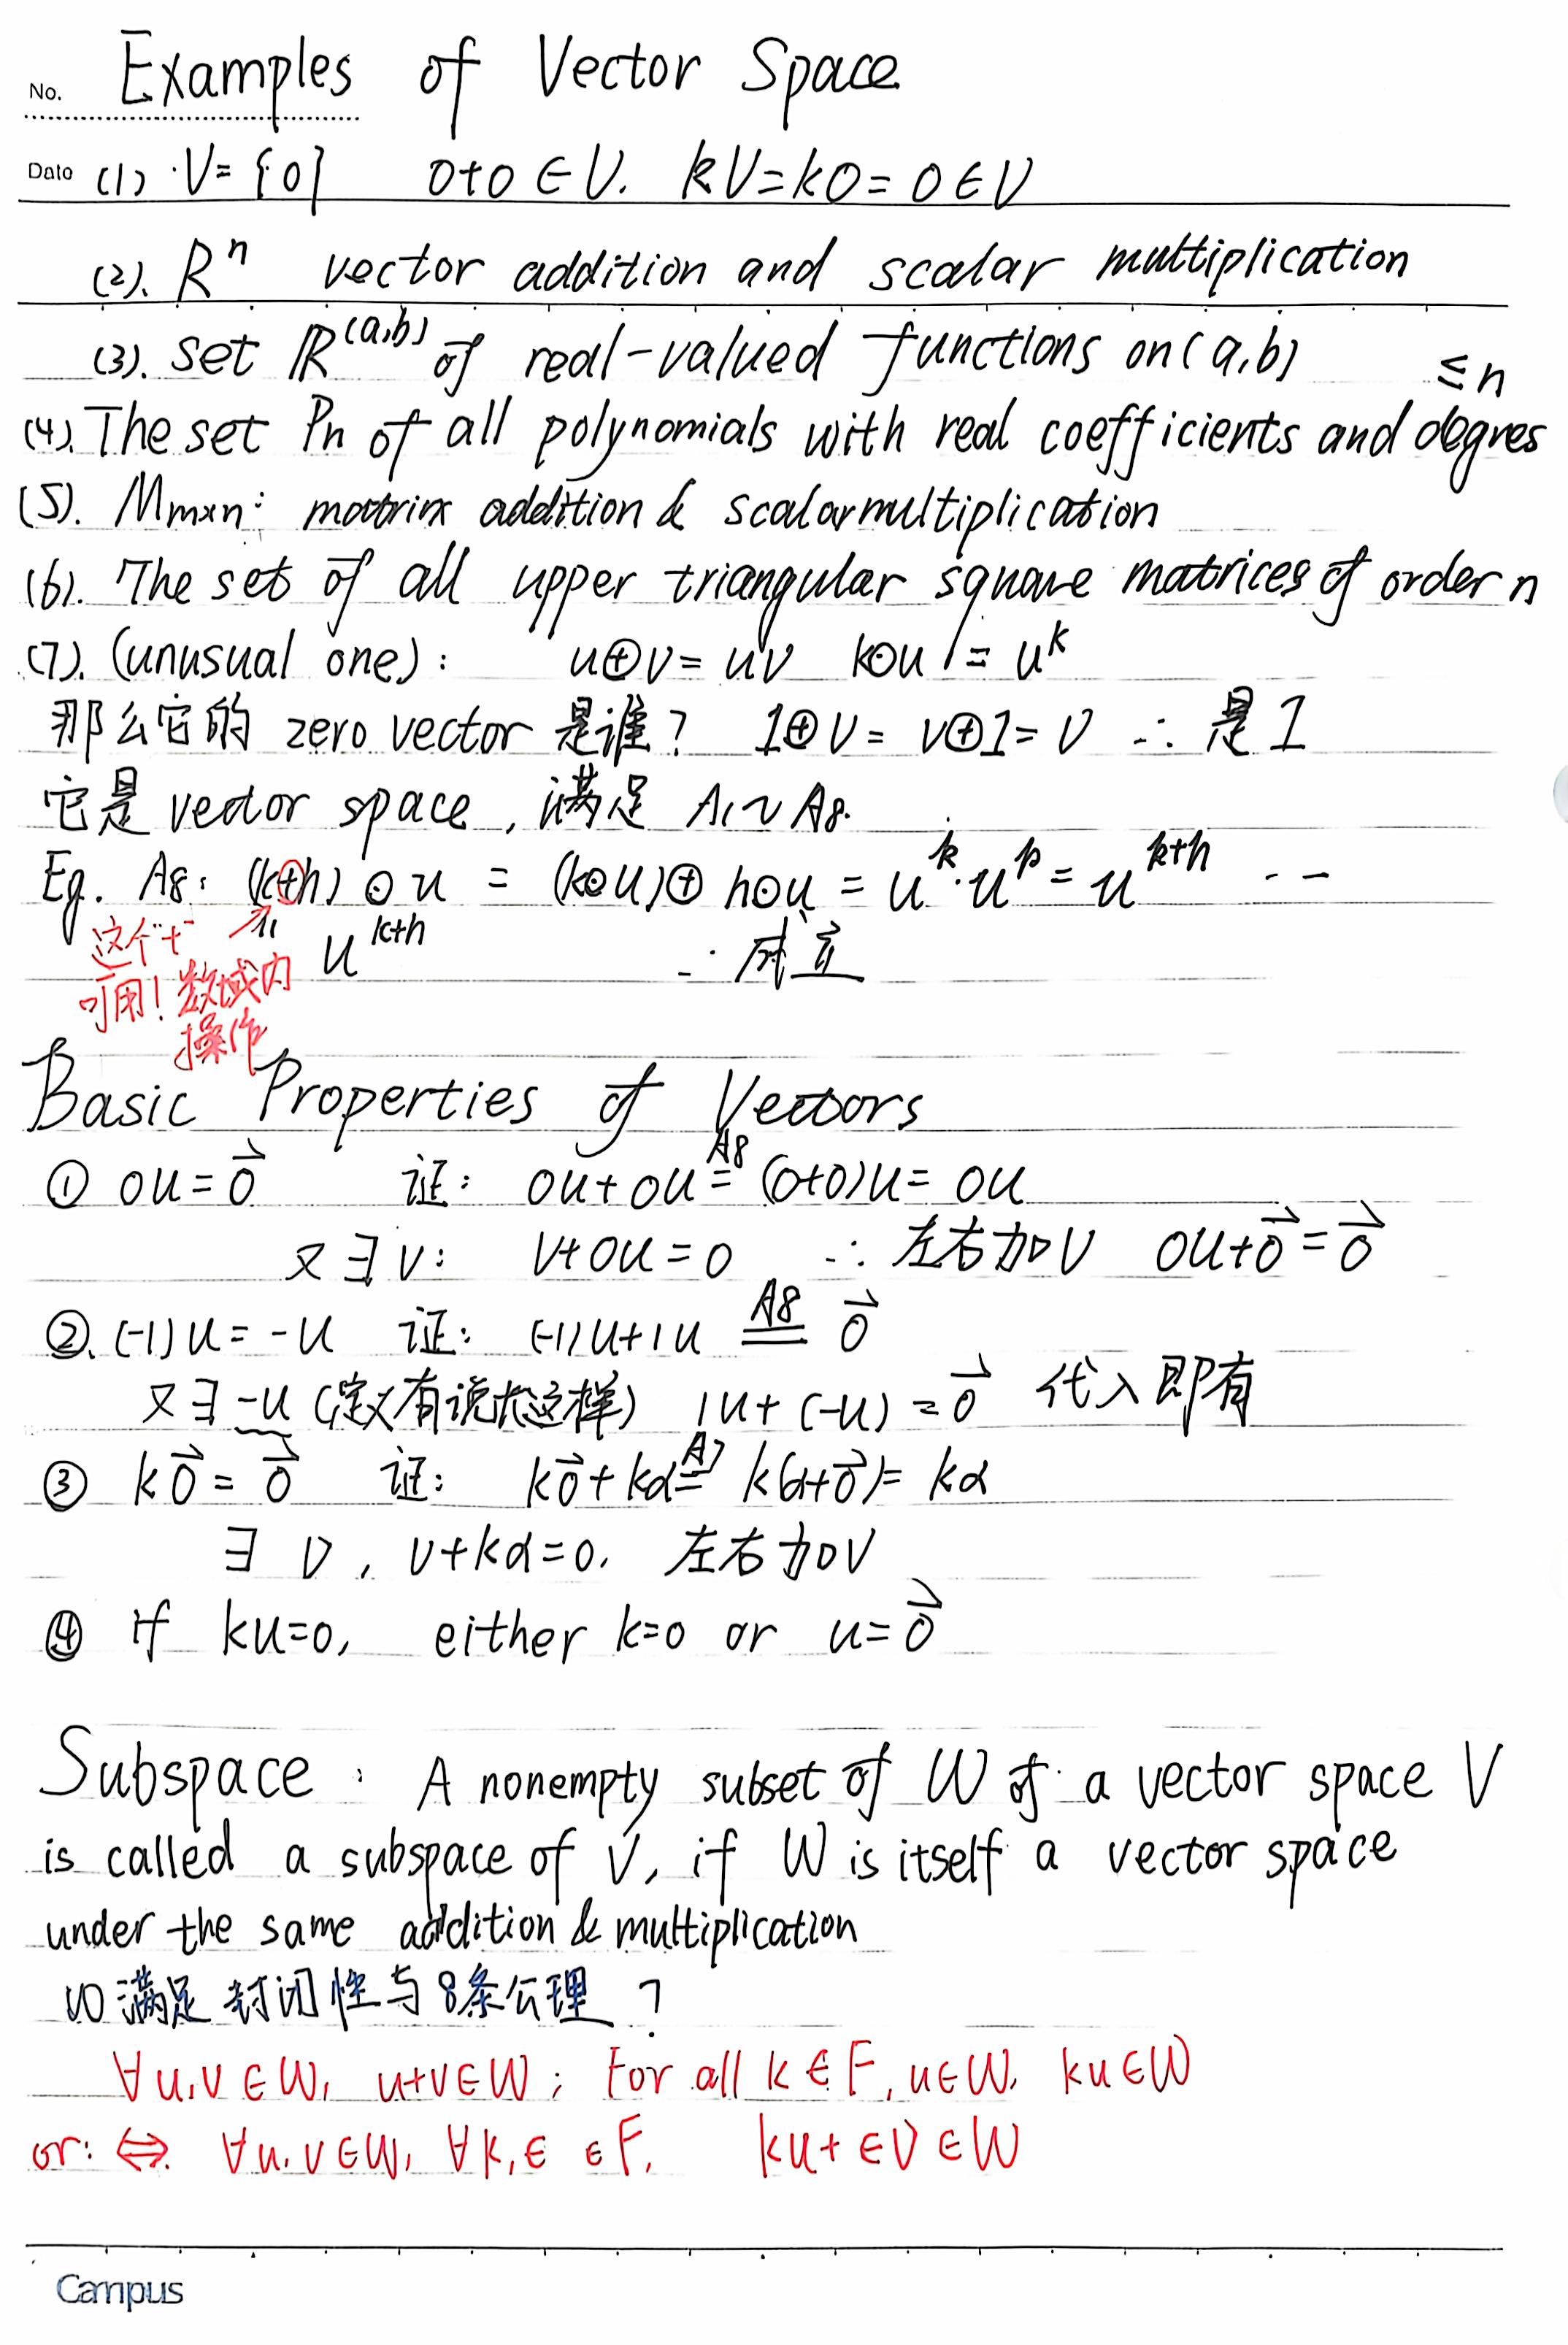 No. Examples of Vector Space
Date (1) ·V={0} 0+0∈V. kV=k0=0∈V
(2). Rⁿ vector addition and scalar multiplication
(3). set ℝ^(a,b) of real-valued functions on (a,b)
≤n
(4). The set Pn of all polynomials with real coefficients and degres
(5). Mm×n: matrix addition & scalar multiplication
(6). The set of all upper triangular square matrices of order n
(7). (unusual one): u⊕v=uv k⊙u=u^k
那么它的 zero vector 是谁? 1⊕v=v⊕1=v ∴是1
它是 vector space, 满足 A1~A8.
Eg. A8: (k+h)⊙u = (k⊙u)⊕h⊙u = u^k·u^h = u^(k+h) --
这个"+" u^(k+h) ∴成立
可用! 数域内
操作
Basic Properties of Vectors
① 0u=0⃗ 证: 0u+0u =(A8) (0+0)u=0u
又∃v: v+0u=0 ∴左右加v 0u+0⃗=0⃗
②. (-1)u=-u 证: (-1)u+1u =(A8) 0⃗
又∃-u (定义有说存在这样) 1u+(-u)=0⃗ 代入即有
③ k0⃗=0⃗ 证: k0⃗+kα =(A7) k(α+0⃗)=kα
∃ v, v+kα=0, 左右加v
④ if ku=0, either k=0 or u=0⃗
Subspace: A nonempty subset of W of a vector space V
is called a subspace of V, if W is itself a vector space
under the same addition & multiplication
(1) 满足 封闭性与8条公理 ?
∀u,v∈W, u+v∈W; For all k∈F, u∈W, ku∈W
or: ⇔ ∀u,v∈W, ∀k,∈ ∈F, ku+∈v∈W
Campus